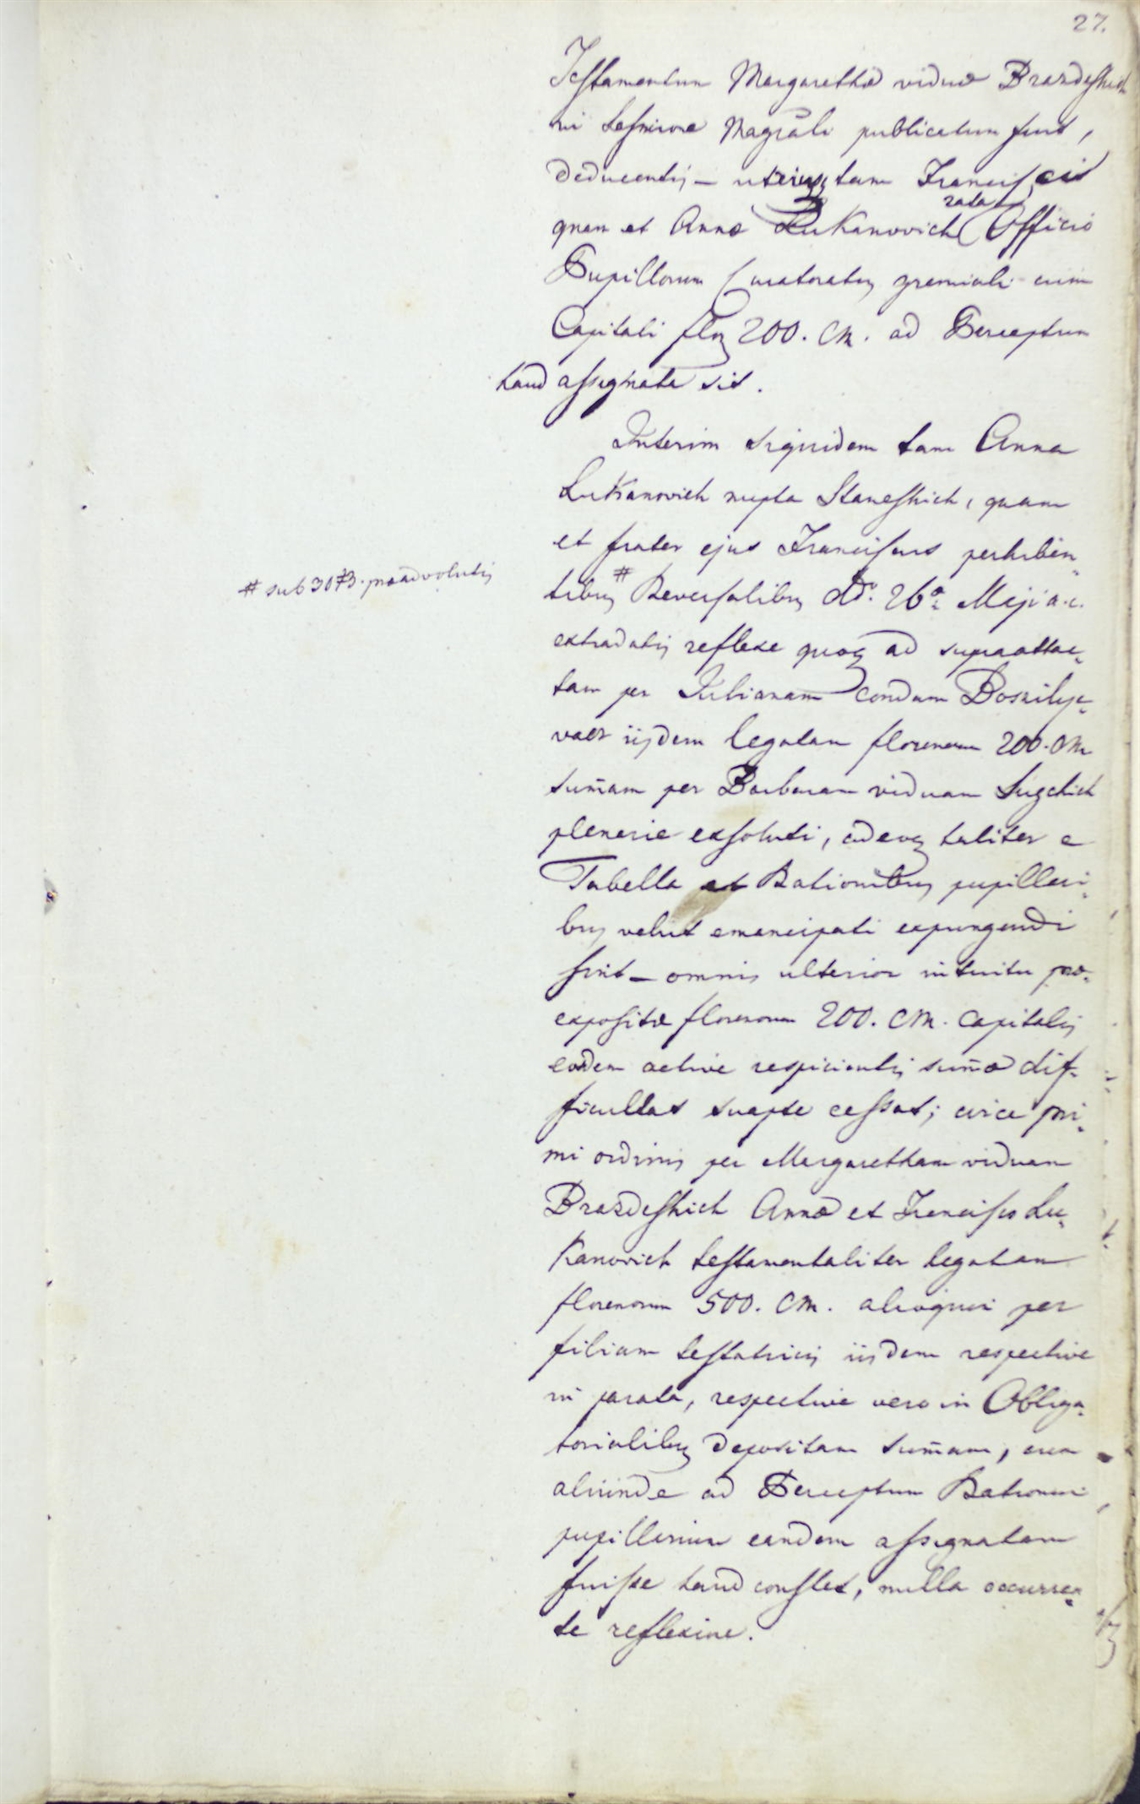 27.
Testamentum Margarethæ viduæ Brazdeskich
in Sessione Magrāli publicatum sunt,
deducentis – utriusq tam Francisci
rata
quam et Annæ Lukanovich Officio
Pupillorum Curatoratus gremiali cum
Capitali flor 200. CM. ad Perceptum
haud assignata sit.
Interim siquidem tam Anna
Lukanovich nupta Staneshich, quam
et frater ejus Franciscus perhiben-
# sub 3073. præadvolutis
tibus # Reversalibus dd. 26a Maji a. c.
extradatis reflexe quoq ad supraattac-
tam per Julianam condam Bosnilye-
vacz iisdem legatam florenorum 200. CM
sum̄am per Barbaram viduam Sugchich
plenerie exsoluti, adeoq taliter e
Tabella et Rationibus pupillari-
bus velut emancipati expungendi
sint – omnis ulterior intuitu præ-
expositæ florenorum 200. CM. Capitalis
eosdem active respicientis sum̄æ dif-
ficultas suapte cessat; circa pri-
mi ordinis per Margaretham viduam
Brazdeshich Annæ et Francisco Lu-
kanovich testamentaliter legatam
florenorum 500. CM. alioquin per
filiam testatricis iisdem respective
in parata, respective vero in Obliga-
torialibus depositam sum̄am, cum
aliunde ad Perceptum Rationum
pupillarium eandem assignatam
fuisse haud constet, nulla occurren-
te reflexine.